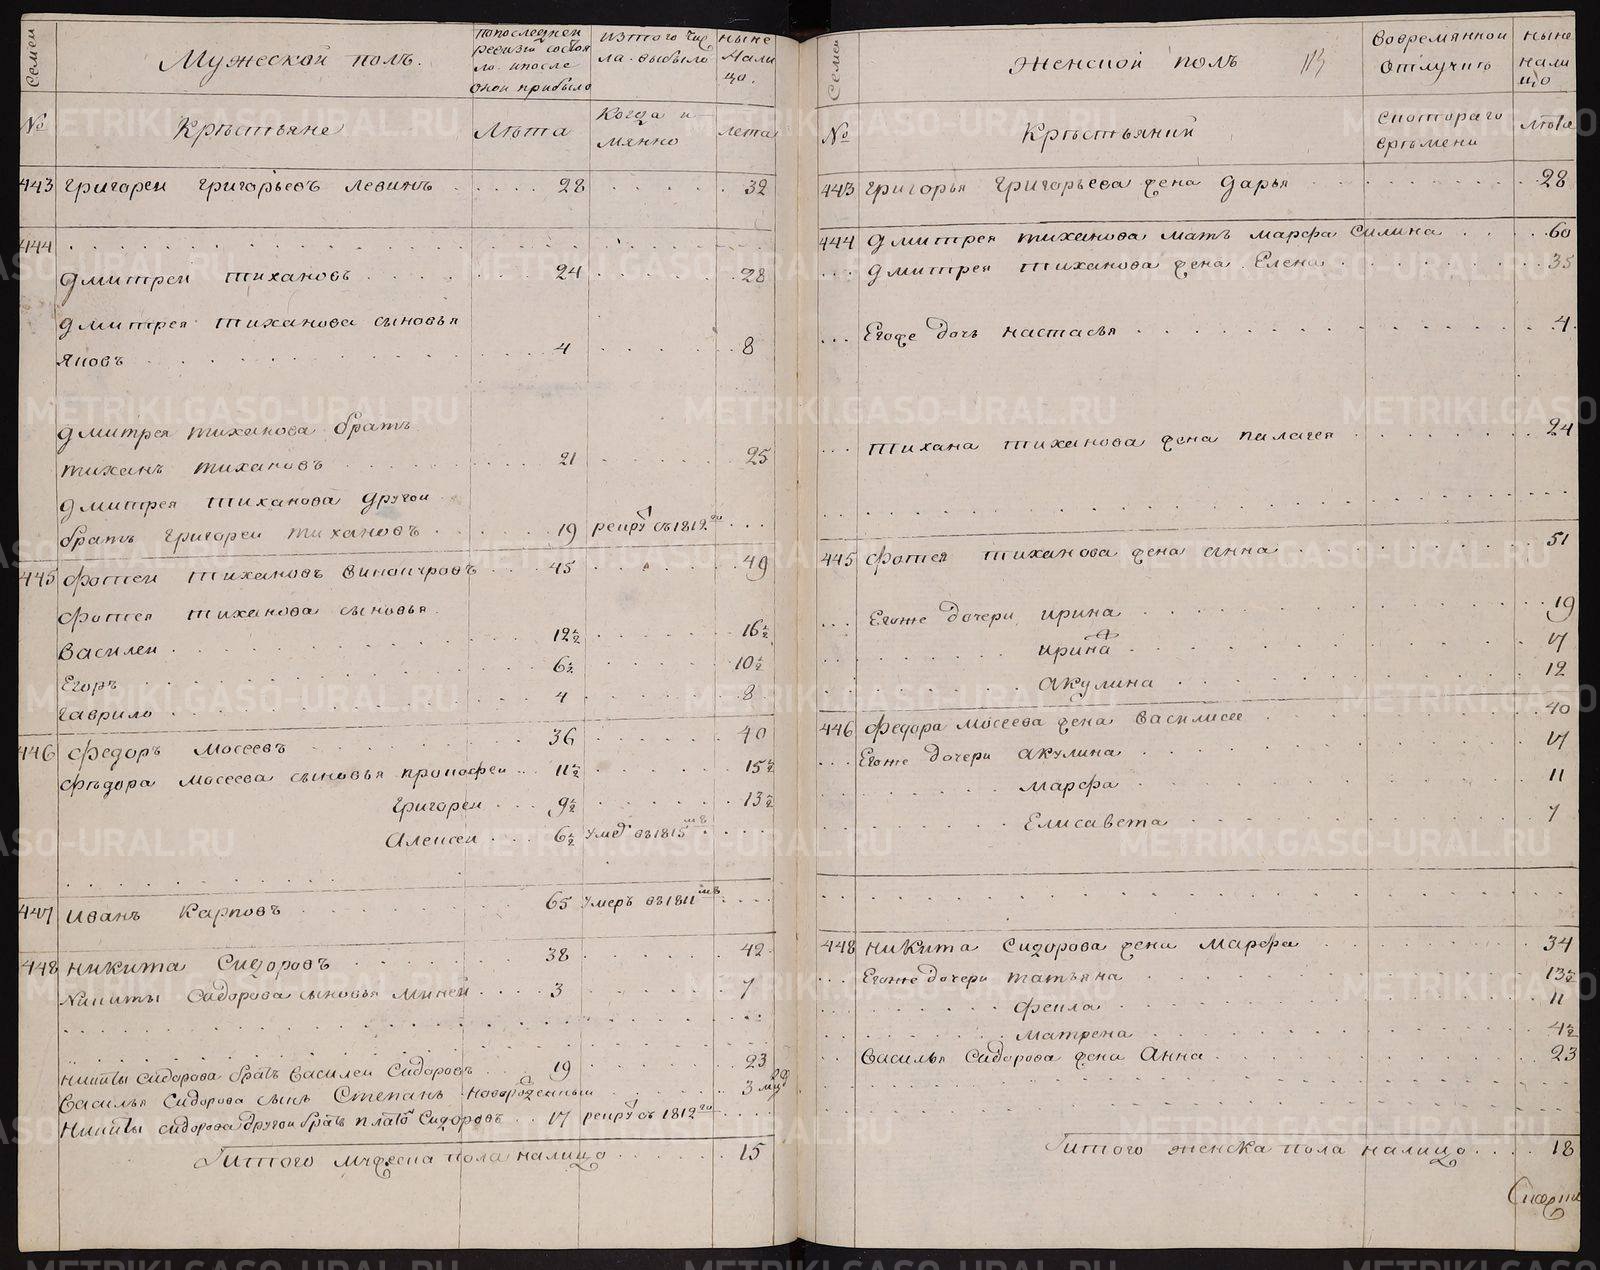 Семеи
Мужеской полъ.
попоследнеи
ревизіи состоя
ло ипосле
онои прибыло
изтого чис
ла выбыло
ныне
нали
цо.
№
Крѣстьяне
Лѣта
Когда и
мянно
лета
443 григореи григорьевъ левинъ 28 32
444
дмитреи тихановъ 24 28
дмитрея тиханова сыновья
яковъ 4 8
дмитрея тиханова братъ
тиханъ тихановъ 21 25
дмитрея тиханова другои
братъ григореи тихановъ 19 рекру съ 1812го
445 фотеи тихановъ винокуровъ 45 49
фотея тиханова сыновья
василеи 12½ 16½
Егоръ 6½ 10½
гаврило 4 8
446 федоръ мосеевъ 36 40
фѣдора мосеева сыновья прокофеи 11½ 15½
григореи 9½ 13½
Алексеи 6½ умер въ 1815мъ
447 иванъ карповъ 65 умеръ въ 1811мъ
448 никита сидоровъ 38 42
никиты сидорова сыновья минеи 3 7
никиты сидорова братъ василеи сидоровъ 19 23
василья сидорова сынъ степанъ новорожденныи 3 мцд
никиты сидорова другои братъ плато сидоровъ 17 рекру съ 1812го
Итого мужеска пола налицо 15
Семеи
женской полъ
113
вовремяннои
отлучкѣ
ныне
нали
цо
№
Крѣстьянки
скотораго
врѣмени
лѣта
443 григорья григорьева жена дарья 28
444 дмитрея тиханова мать марфа силина 60
дмитрея тиханова жена Елена 35
Егоже дочь настасья 4
тихана тиханова жена палагея 24
445 фотея тиханова жена анна 51
Егоже дочери ирина 19
ирина 17
акулина 12
446 федора мосеева жена василисее 40
Егоже дочери акулина 17
марфа 11
Елисавета 7
448 никита сидорова жена марфа 34
Егоже дочери татьяна 13½
фекла 11
матрена 4½
василья сидорова жена Анна 23
Итого женска пола налицо 18
METRIKI.GASO-URAL.RU